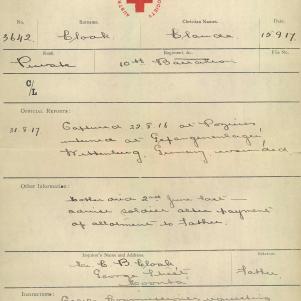 No. Surname. Christian Names. Date.
3642. Cloak Claude 15.9.17
Rank. Regiment, &c. File No.
Private 10th Battalion
C/L
OFFICIAL REPORTS:
31.8.17 Captured 22.8.16 at Pozières
interned at Gefangenenlager
Wittenberg, Germany wounded.
Other Information:
Mother died 2nd June last —
advise soldier after payment
of allotment to father.
Inquirer's Name and Address. Relation.
Mr C B Cloak Father
George Street
Moonta
Instructions: